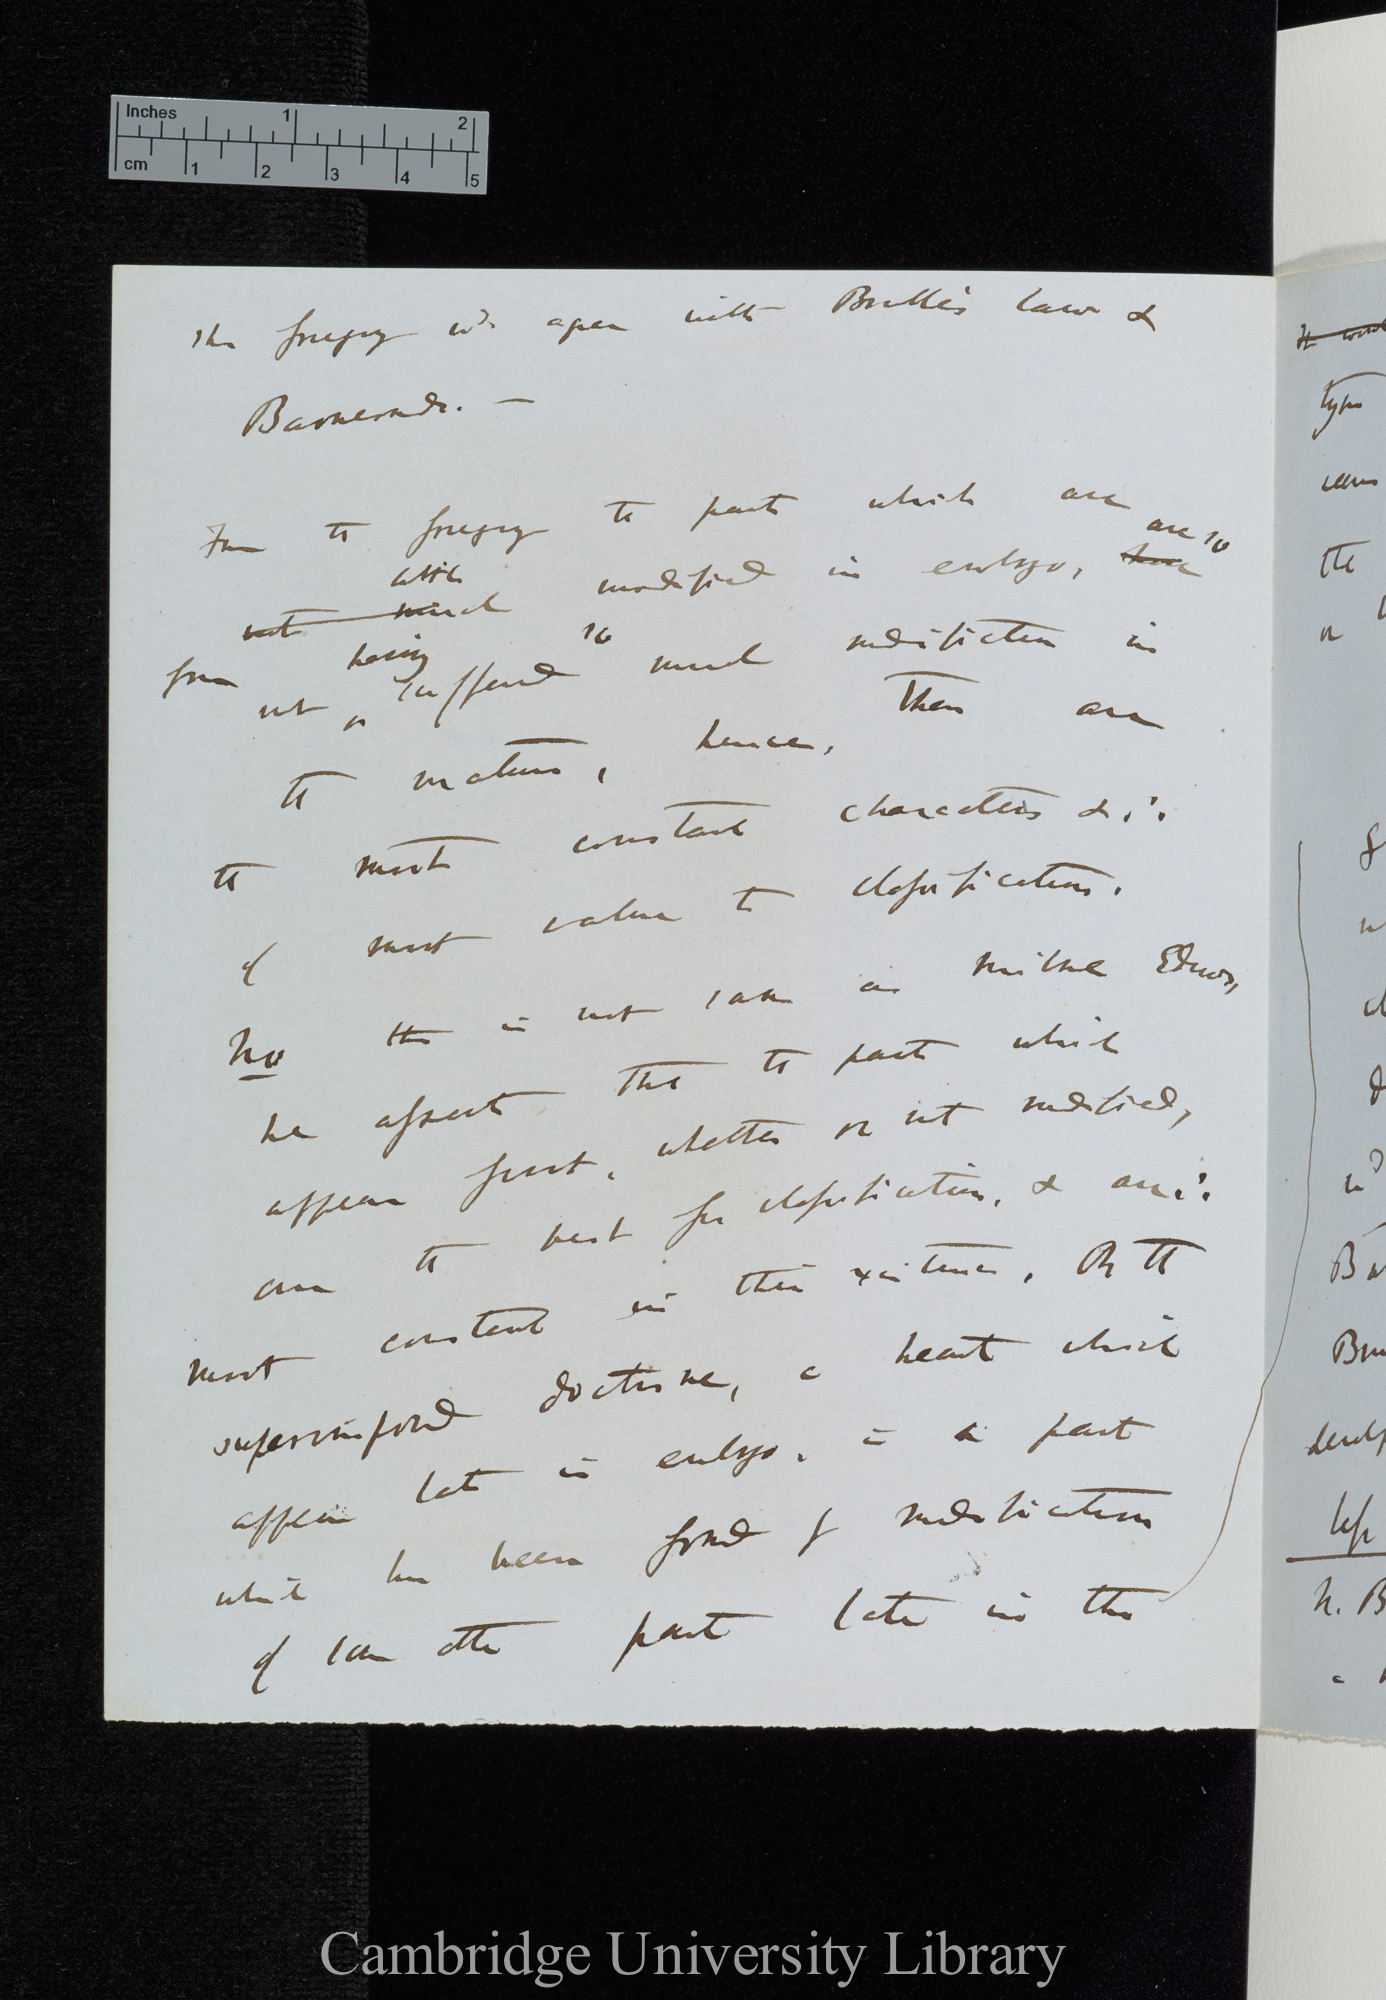 Inches 1 2
cm 1 2 3 4 5
The foregoing wd agree with Brullé's law &
Barneoud. —
From the foregoing the parts which are
not much little modified in embryo, have are so
from not having suffered so much modification in
the mature, hence, these are
the most constant characters & ∴
of most value to classification.
No this is not same as Milne Edwds,
he asserts that the parts which
appear first, whether or not modified,
are the best for classification, & are ∴
most constant in their existence, By the
superimposed doctrine, a heart which
appears late in embryo, is a part
which has been formed by modification
of some other part late in the
type
the
Bar
Bru
N. B
Cambridge University Library